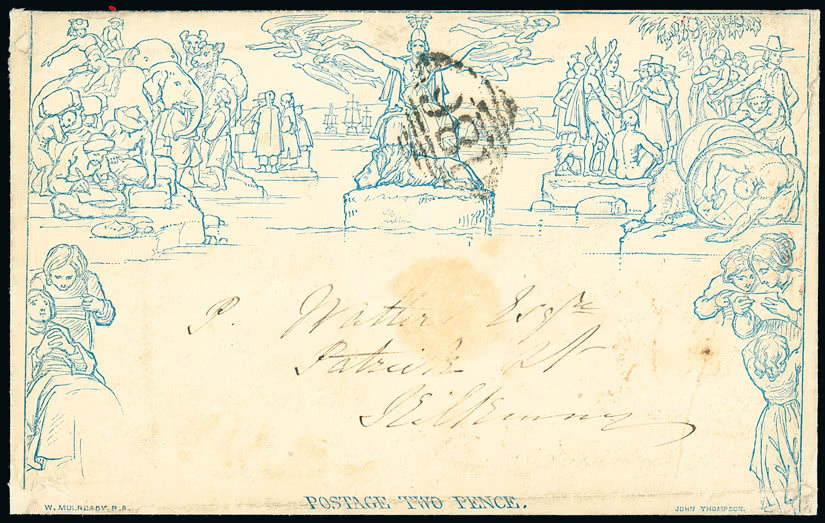 P. Watters Esqre
Patrick St
Kilkenny
POSTAGE TWO PENCE.
W. MULREADY. R.A.
JOHN THOMPSON.